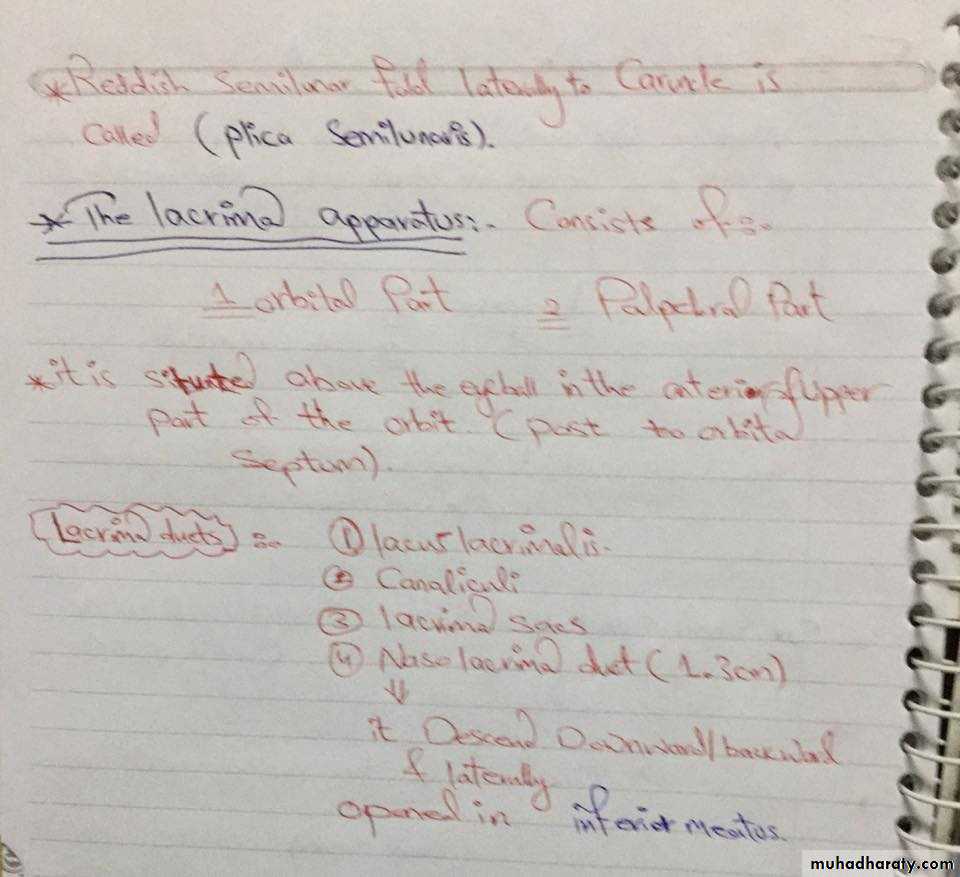 *Reddish Semilunar fold laterally to Caruncle is
called (plica Semilunaris).
* The lacrimal apparatus:- Consists of:-
1 orbital Part 2 Palpebral Part
*it is situated above the eyeball in the anterior of Upper
part of the orbit (post to orbital
Septum).
Lacrimal ducts :- ① lacus lacrimalis.
② Canaliculi
③ lacrimal sacs
④ Nasolacrimal duct (1.3cm)
⇓
it Descend Downward/backward
& laterally
opened in inferior meatus.
muhadharaty.com